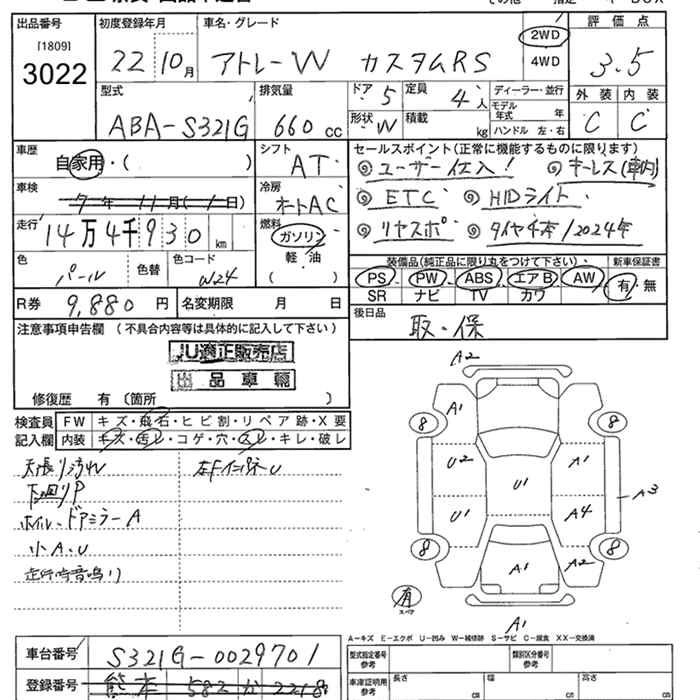 出品番号 初度登録年月 車名・グレード 評価点
[1809]
3022 22 10月 アトレーW カスタムRS 2WD 3.5
4WD
型式 排気量 ドア 5 定員 4人 ディーラー・並行 外装 内装
モデル年式 年
ABA-S321G 660cc 形状 W 積載 kg ハンドル 左・右 C C
車歴 シフト セールスポイント(正常に機能するものに限ります)
自家用・( ) AT ユーザー仕入! キーレス(車内)
車検 冷房 ETC HIDライト
7年11月(1日) オートAC
走行 燃料 リヤスポ タイヤ4本/2024年
14万4千930km ガソリン
色 色替 色コード 軽・油 装備品(純正品に限り丸をつけて下さい) 新車保証書
パール W24 ( ) PS PW ABS エアB AW 有・無
SR ナビ TV カワ
R券 9,880円 名変期限 月 日 後日品
取・保
注意事項申告欄 (不具合内容等は具体的に記入して下さい)
JU適正販売店
出品車輌
修復歴 有 (箇所 )
検査員 FW キズ・飛石・ヒビ割・リペア跡・X要
記入欄 内装 キズ・汚レ・コゲ・穴・スレ・キレ・破レ
天張り汚れ 左Fインパネ U
下回りP
ホイル・ドアミラーA
小A、U
走行時音鳴り
A2
A1
8 8
U2 A1
U1
A3
U1 A4
8 8
A1 A2
有
スペア
A1
A-キズ E-エクボ U-凹み W-補修跡 S-サビ C-腐食 XX-交換済
車台番号 S321G-0029701 型式指定番号 参考 類別区分番号 参考
登録番号 熊本 582 か 2218 車庫証明用 参考 長さ cm 幅 cm 高さ cm